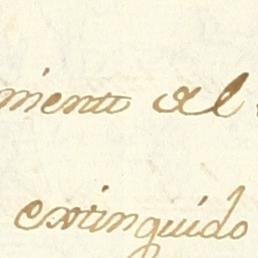 miento al
extinguido